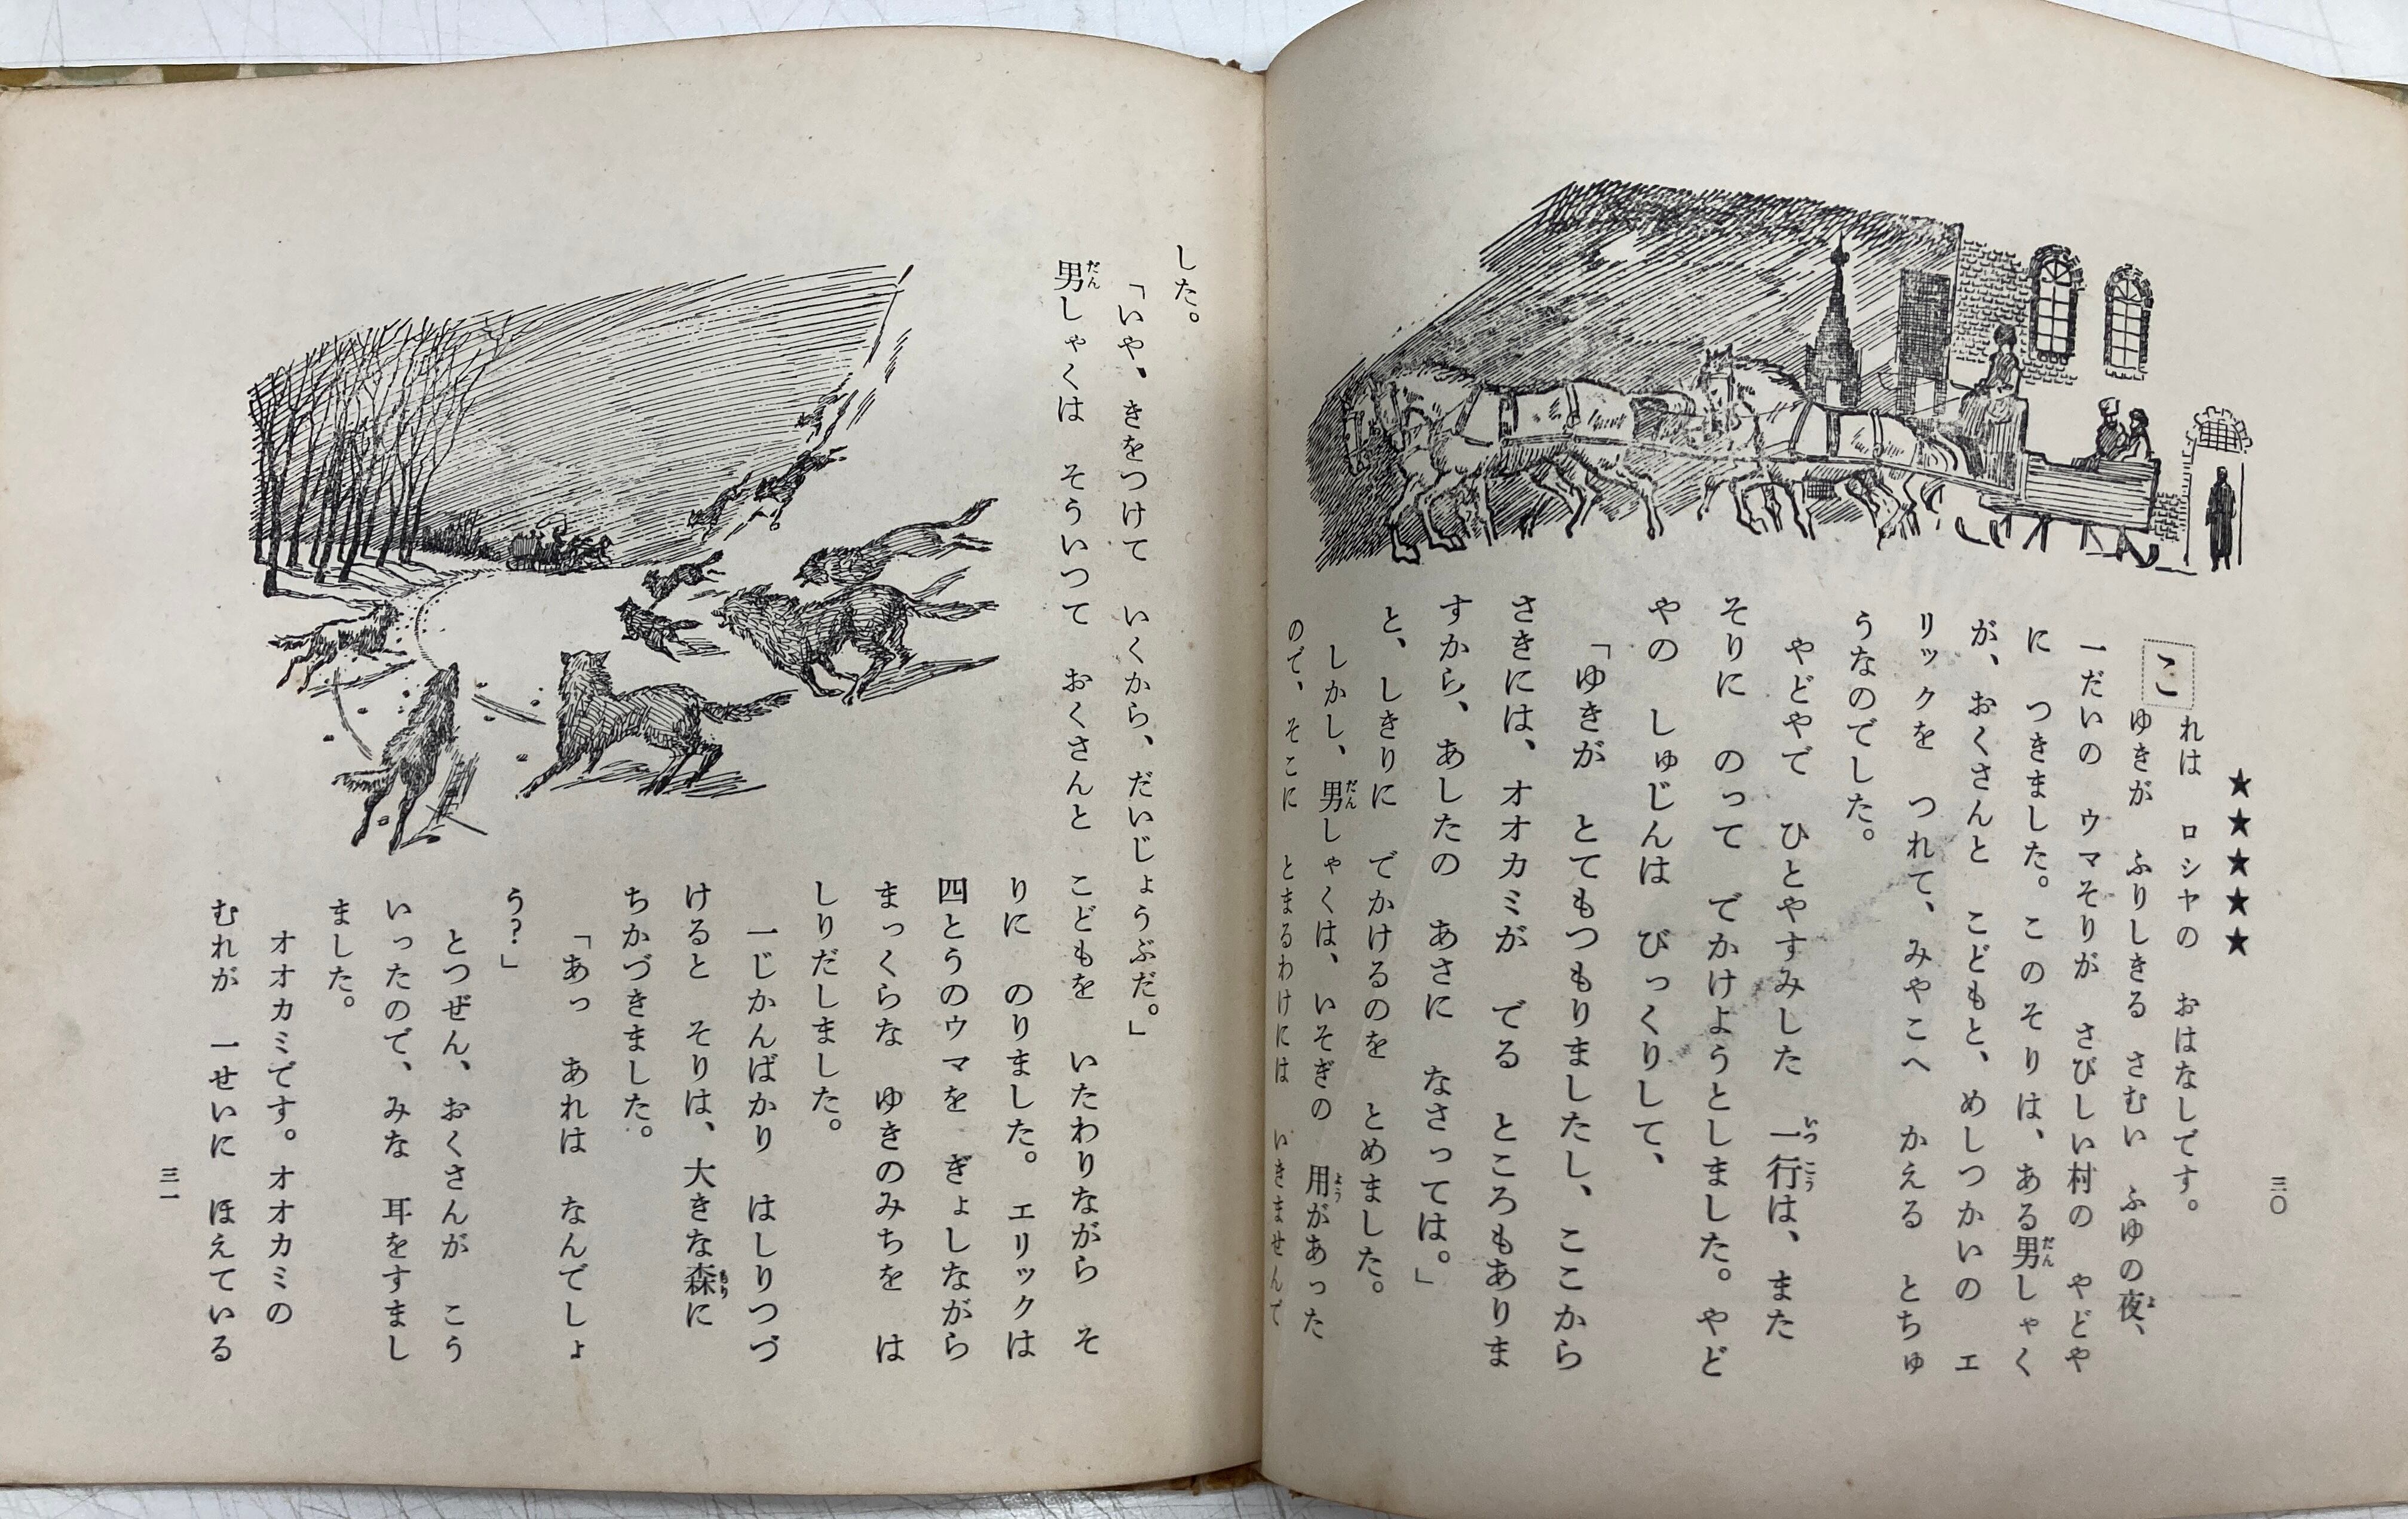 三〇
★★★★★
これは ロシヤの おはなしです。
ゆきが ふりしきる さむい ふゆの夜、
一だいの ウマそりが さびしい村の やどや
に つきました。このそりは、ある男しゃく
が、おくさんと こどもと、めしつかいの エ
リックを つれて、みやこへ かえる とちゅ
うなのでした。
やどやで ひとやすみした 一行は、また
そりに のって でかけようとしました。やど
やの しゅじんは びっくりして、
「ゆきが とてもつもりましたし、ここから
さきには、オオカミが でる ところもありま
すから、あしたの あさに なさっては。」
と、しきりに でかけるのを とめました。
しかし、男しゃくは、いそぎの 用があった
ので、そこに とまるわけには いきませんで
した。
「いや、きをつけて いくから、だいじょうぶだ。」
男しゃくは そういつて おくさんと こどもを いたわりながら そ
りに のりました。エリックは
四とうのウマを ぎょしながら
まっくらな ゆきのみちを は
しりだしました。
一じかんばかり はしりつづ
けると そりは、大きな森に
ちかづきました。
「あっ あれは なんでしょ
う？」
とつぜん、おくさんが こう
いったので、みな 耳をすまし
ました。
オオカミです。オオカミの
むれが 一せいに ほえている
三一